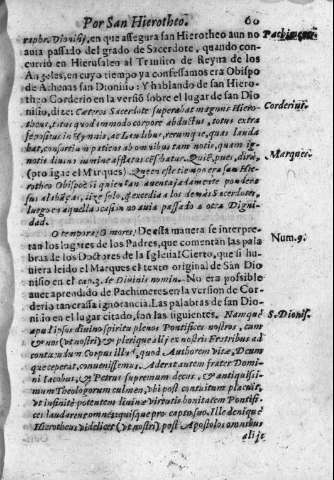 Por San Hierotheo. 60
raphr. Dionisij, en que assegura san Hierotheo aun no
auia passado del grado de Sacerdote, quando con-
currió en Hierusalen al Transito de Reyna de los
Angeles, en cuyo tiempo ya confessamos era Obispo
de Athenas san Dionisio: Y hablando de san Hiero-
theo Corderio en la versiõ sobre el lugar de san Dio
nisio, dize: Cæteros Sacerdote superabat magnus Hiero-
theus, totus quod immodo corpore abductus, totus extra
se positus
consortia
Quiẽ, pues, dirá,
(prosigue el Marques) Que en este tiempo era san Hie-
rotheo Obispo: si quien tan auentajadamente pondera
sus alabãças, dize solo, q̃ excedia a los demàs Sacerdotes,
luego en aquella ocasiõ no auia passado a otra Digni-
dad.
O tempora, O mores; De esta manera se interpre-
tan los lugares de los Padres, que comentan las pala
bras de los Doctores de la Iglesia! Cierto, que si hu
uiera leido el Marques el texto original de San Dio
nisio en el cap. 3. de Diuinis nomin. No era possible
auer aprendado de Pachimeres en la version de Cor-
deria tancrasa ignorancia. Las palabras de san Dio
nisio en el lugar citado, son las siguientes. Namque
apud ipsos diuino spiritu plenos Pontifices nostros, cum
& nos (vt nosti) & plerique alij ex nostris Fratribus ad
contuendum Corpus illud, quod Authorem vitæ, Deum
que ceperat, conuenissemus. Aderat autem frater Domi
ni Iacobus, & Petrus supremum decus, & antiquissi-
mum Theologorum culmen, vbi post contuitum placuit,
vt infinitè potentem diuinæ virtutis bonitatem Pontifi-
ces laudarent omnes quisque pro captu suo. Ille denique
Hierotheus videlicet (vt nosti) post Apostolos omnibus
alijs
Pachimeres
Corderius.
Marques.
Num. 9.
S. Dionis.